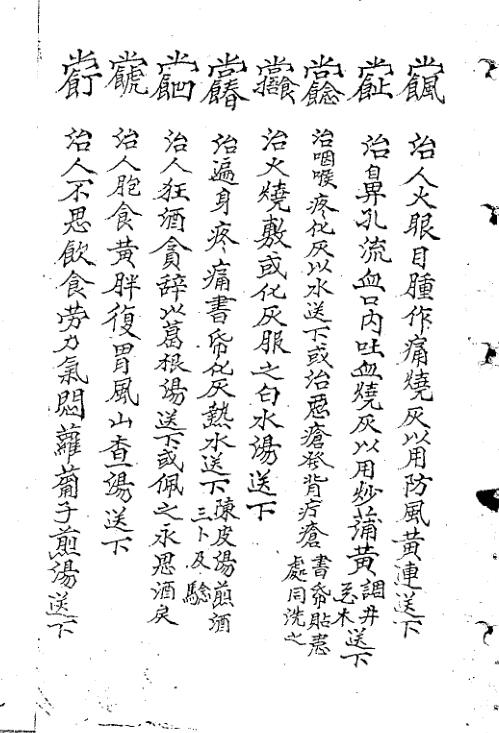 治人火眼目腫作痛燒灰以用防風黃連送下
治鼻孔流血口内吐血燒灰以用炒蒲黃調井送下
治咽喉疼化灰以水送下或治惡瘡發背疔瘡書帋貼患處同洗之
治火燒敷或化灰服之白水湯送下
治遍身疼痛書帋化灰熱水送下陳皮湯煎酒三卜及驗
治人狂酒貪辞以葛根湯送下或佩之永思酒戾
治人胞食黃胖復胃風山查湯送下
治人不思飲食劳力氣悶蘿蔔子煎湯送下